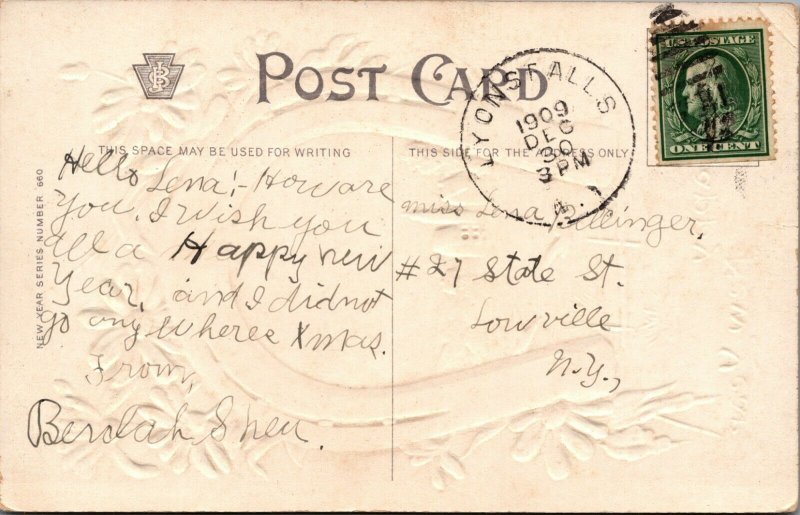 POST CARD
THIS SPACE MAY BE USED FOR WRITING
THIS SIDE FOR THE ADDRESS ONLY
NEW YEAR SERIES NUMBER 660
LYONS FALLS
1909
DEC
30
3 PM
U.S. POSTAGE
ONE CENT
Hello Lena:- How are
you. I Wish you
all a Happy new
Year. and I did not
go any Wheree Xmas.
From,
Beulah
miss Lena
#27 State St.
Lowville
N.Y.,